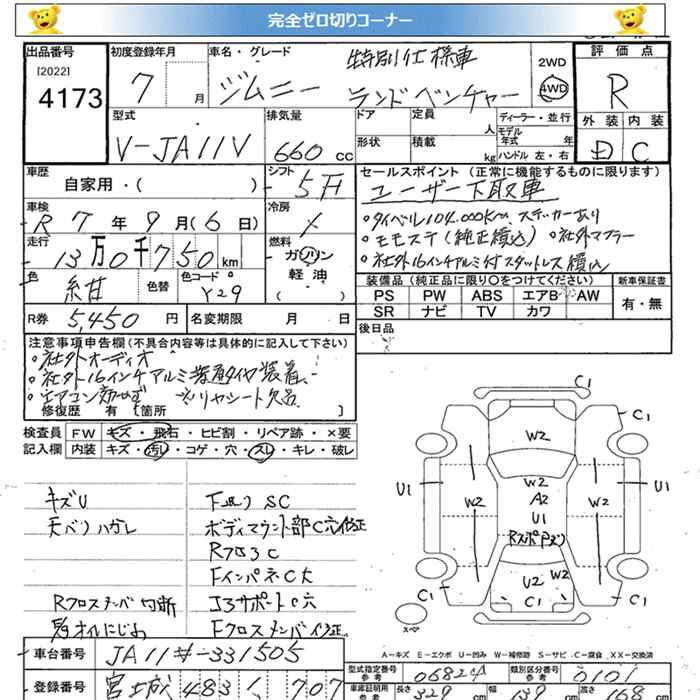 完全ゼロ切りコーナー
出品番号
[2022]
4173
初度登録年月
7 月
車名・グレード
特別仕様車
ジムニー ランドベンチャー
2WD
4WD
評価点
R
型式
V-JA11V
排気量
660 cc
ドア
定員
人
形状
積載
kg
ディーラー・並行
モデル年式 年
ハンドル 左・右
外装 内装
D C
車歴
自家用・( )
シフト
5F
セールスポイント (正常に機能するものに限ります)
ユーザー下取車
○タイベル104,000Km、ステッカーあり
○モモステ(純正積込) ○社外マフラー
○社外16インチアルミ付スタットレス積込
車検
R 7 年 9 月(6 日)
冷房
走行
13万0千750 km
燃料
ガソリン
軽油
( )
色
紺
色替
色コード
Y29
装備品 (純正品に限り○をつけてください)
PS PW ABS エアB AW
SR ナビ TV カワ
新車保証書
有・無
R券 5,450 円
名変期限 月 日
後日品
注意事項申告欄(不具合内容等は具体的に記入して下さい)
○社外オーディオ
○社外16インチアルミ装着
○エアコン効かず ※リヤシート欠品
修復歴 有〔箇所 〕
検査員記入欄
FW キズ・飛石・ヒビ割・リペア跡・×要
内装 キズ・汚レ・コゲ・穴・スレ・キレ・破レ
キズU
天ベリハガレ
Rクロスメンバ切断
オイルにじみ
F廻りSC
ボディマウント部C穴修正
RフロアC
FインパネC大
J3サポートC穴
Fクロスメンバ修正
C1
C1
W2
U1
W2
W2
A2
U1
W2
U1
U2
W2
C1
C1
C1
スペア
A-キズ E-エクボ U-凹み W-補修跡 S-サビ C-腐食 XX-交換済
車台番号
JA11#-331505
登録番号
宮城 483 707
型式指定番号
参考
06824
類別区分番号
参考
0101
車庫証明用
参考
長さ 329 cm
幅 139 cm
高さ 168 cm